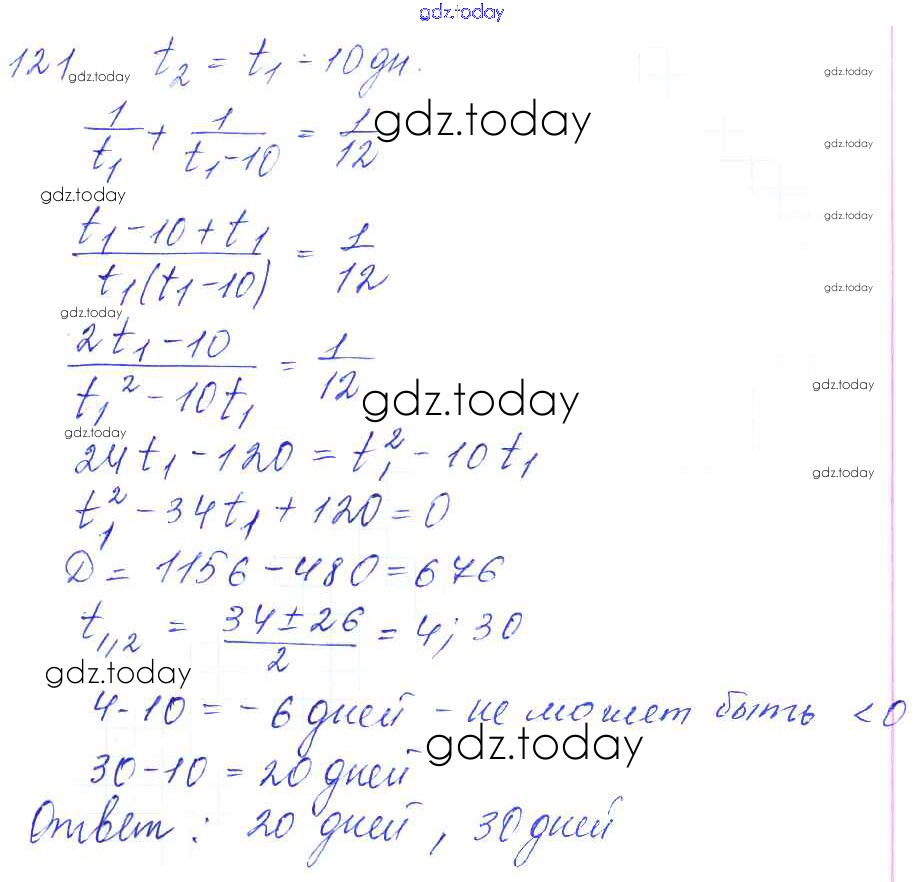 gdz.today
121 gdz.today t₂ = t₁ - 10 дн. gdz.today
1/t₁ + 1/(t₁-10) = 1/12 gdz.today gdz.today
gdz.today gdz.today
(t₁-10+t₁)/(t₁(t₁-10)) = 1/12 gdz.today
gdz.today
(2t₁-10)/(t₁²-10t₁) = 1/12 gdz.today gdz.today
gdz.today
24t₁-120 = t₁² - 10t₁ gdz.today
t₁² - 34t₁ + 120 = 0
D = 1156 - 480 = 676
t₁,₂ = (34 ± 26)/2 = 4; 30
gdz.today
4-10 = -6 дней - не может быть < 0
gdz.today
30-10 = 20 дней
Ответ: 20 дней, 30 дней